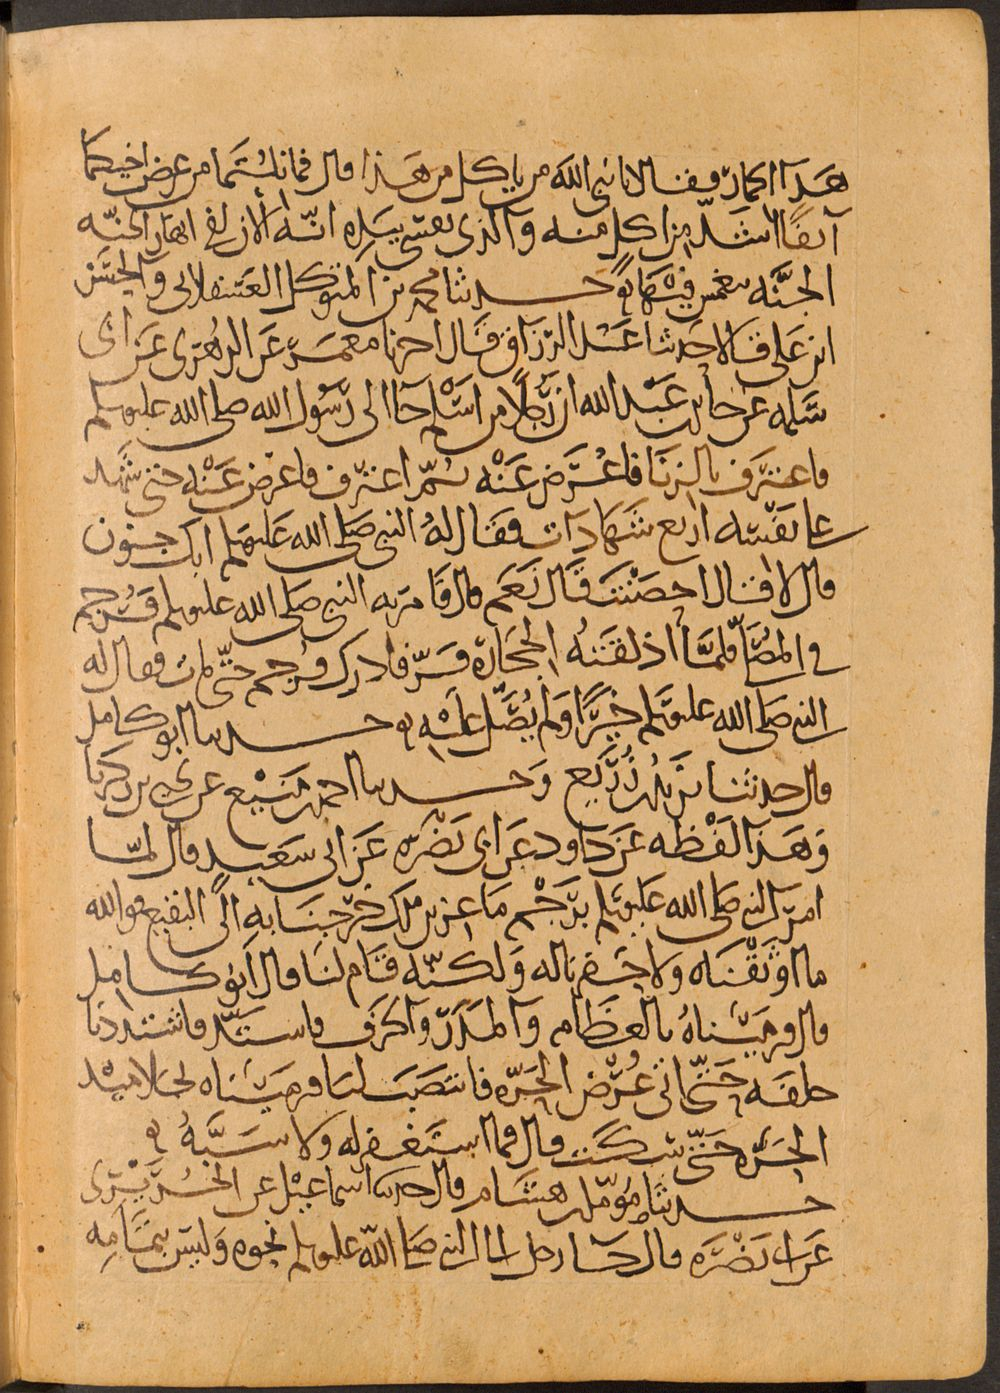 هذا الحمار فقالا يا نبي الله من ياكل من هذا قال فما نلتما من عرض اخيكما
آنفًا اشد من اكل منه والذي نفسي بيده انه الآن لفي انهار الجنه
الجنه ينغمس فيها حدثنا محمد بن المتوكل العسقلاني والحسن
ابن علي قالا حدثنا عبد الرزاق قال اخبرنا معمر عن الزهري عن ابي
سلمه عن جابر بن عبد الله ان رجلا من اسلم جا الى رسول الله صلى الله عليه وسلم
فاعترف بالزنا فاعرض عنه ثم اعترف فاعرض عنه حتى شهد
على نفسه اربع شهادات فقال له النبي صلى الله عليه وسلم ابك جنون
قال لا قال احصنت قال نعم قال فامر به النبي صلى الله عليه وسلم فرجم
في المصلى فلما اذلقته الحجارة فر فادرك فرجم حتى مات فقال له
النبي صلى الله عليه وسلم خيرًا ولم يصل عليه حدثنا ابو كامل
قال حدثنا يزيد بن زريع وحدثنا احمد بن منيع عن يحيى بن زكريا
وهذا لفظه عن داود عن ابي نضره عن ابي سعيد قال لما
امر النبي صلى الله عليه وسلم برجم ماعز بن ملك خرجنا به الى البقيع فوالله
ما اوثقناه ولا حفرنا له ولكنه قام لنا قال ابو كامل
قال فرميناه بالعظام والمدر والخزف فاشتد فاشتددنا
خلفه حتى اتى عرض الحره فانتصب لنا فرميناه بجلاميد
الحره حتى سكت قال فما استغفر له ولا سبه
حدثنا مؤمل بن هشام قال حدثنا اسماعيل عن الجريري
عن ابي نضره قال جا رجل الى النبي صلى الله عليه وسلم نحوه وليس بتمامه